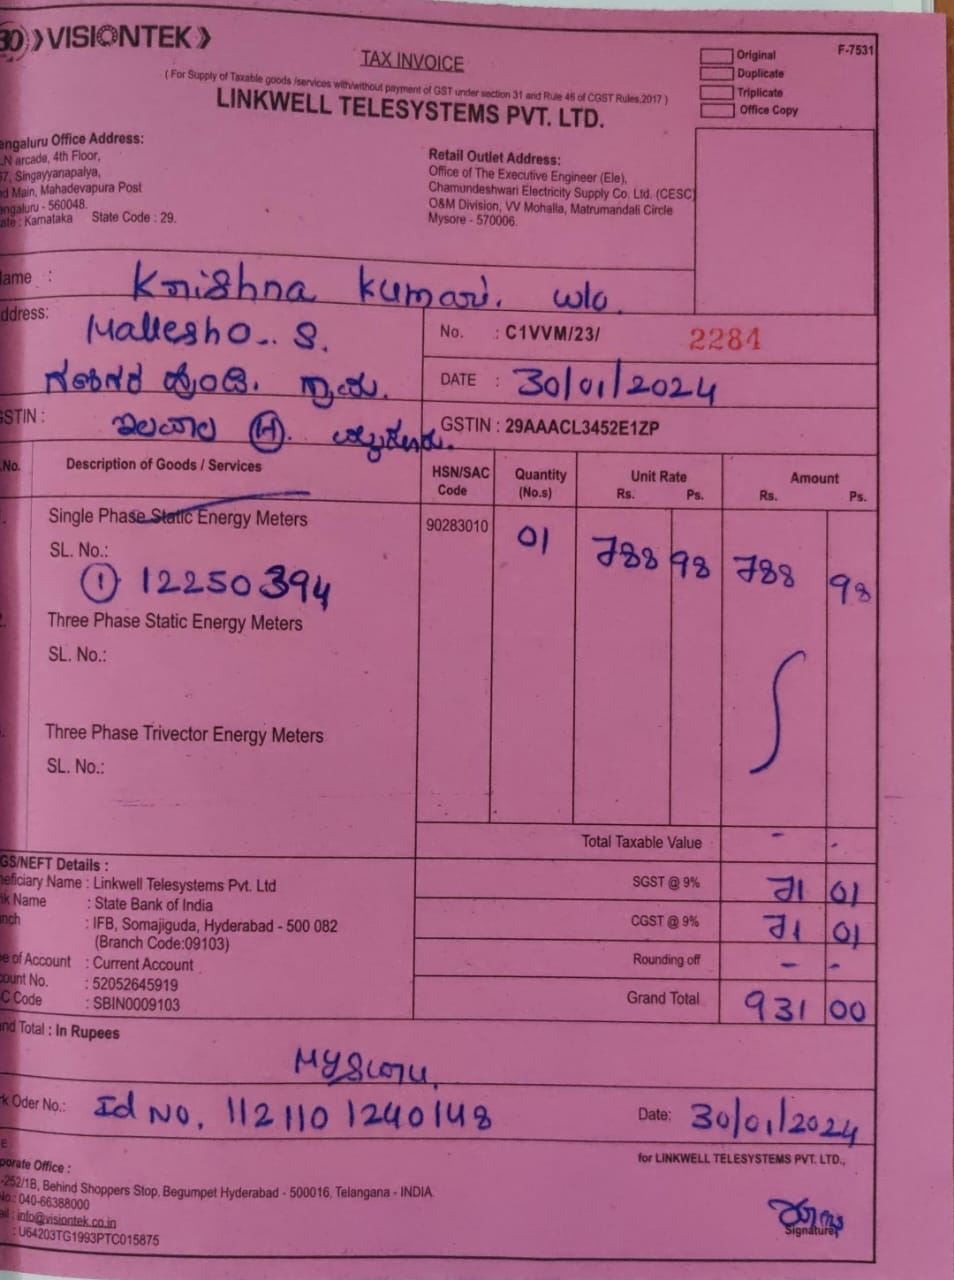 VISIONTEK
TAX INVOICE
( For Supply of Taxable goods /services with/without payment of GST under section 31 and Rule 46 of CGST Rules,2017 )
LINKWELL TELESYSTEMS PVT. LTD.
Original
Duplicate
Triplicate
Office Copy
F-7531
ngaluru Office Address:
N arcade, 4th Floor,
37, Singayyanapalya,
d Main, Mahadevapura Post
ngaluru - 560048.
ate : Karnataka State Code : 29.
Retail Outlet Address:
Office of The Executive Engineer (Ele),
Chamundeshwari Electricity Supply Co. Ltd. (CESC)
O&M Division, VV Mohalla, Matrumandali Circle
Mysore - 570006.
ame : Krishna Kumari. w/o.
ddress: Mallesho.. S.
No. : C1VVM/23/ 2284
DATE : 30/01/2024
GSTIN :
GSTIN : 29AAACL3452E1ZP
.No. Description of Goods / Services HSN/SAC Code Quantity (No.s) Unit Rate Rs. Ps. Amount Rs. Ps.
Single Phase Static Energy Meters 90283010 01 788 98 788 98
SL. No.:
① 12250394
Three Phase Static Energy Meters
SL. No.:
Three Phase Trivector Energy Meters
SL. No.:
Total Taxable Value - -
GS/NEFT Details :
eficiary Name : Linkwell Telesystems Pvt. Ltd
k Name : State Bank of India
nch : IFB, Somajiguda, Hyderabad - 500 082
(Branch Code:09103)
e of Account : Current Account
ount No. : 52052645919
C Code : SBIN0009103
SGST @ 9% 71 01
CGST @ 9% 71 01
Rounding off - -
Grand Total 931 00
nd Total : In Rupees
Mysuru
k Oder No.: Id No. 112110 1240148
Date: 30/01/2024
for LINKWELL TELESYSTEMS PVT. LTD.,
porate Office :
-252/1B, Behind Shoppers Stop, Begumpet Hyderabad - 500016, Telangana - INDIA.
No.: 040-66388000
ail : info@visiontek.co.in
: U64203TG1993PTC015875
Signature